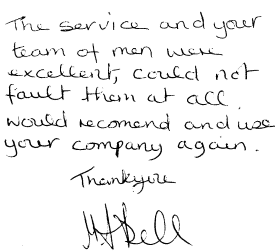 The service and your
team of men were
excellent, could not
fault them at all.
would recomend and use
your company again.
Thankyou